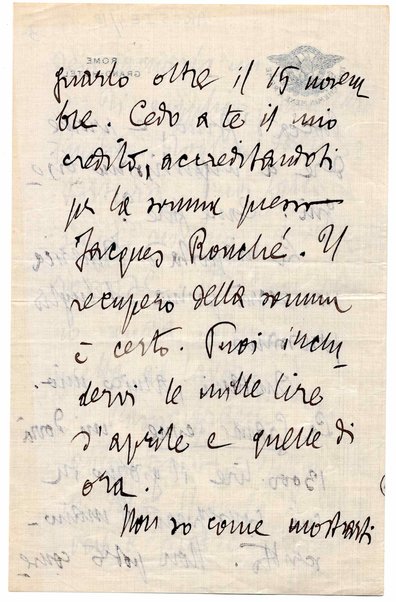 guarlo oltre il 15 novem
bre. Cedo a te il mio
credito, accreditandoti
per la somma presso
Jacques Rouché. Il
recupero della somma
è certo. Puoi inclu
dervi le mille lire
d'aprile e quelle di
ora.
Non so come mostrarti